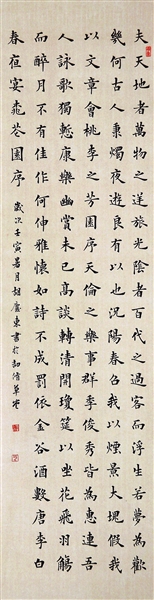 夫天地者萬物之逆旅光陰者百代之過客而浮生若夢為歡
幾何古人秉燭夜遊良有以也況陽春召我以煙景大塊假我
以文章會桃李之芳園序天倫之樂事群季俊秀皆為惠連吾
人詠歌獨慙康樂幽賞未已高談轉清開瓊筵以坐花飛羽觴
而醉月不有佳作何伸雅懷如詩不成罰依金谷酒數唐李白
春夜宴桃花園序 歲次壬寅 月 東書於 清草堂